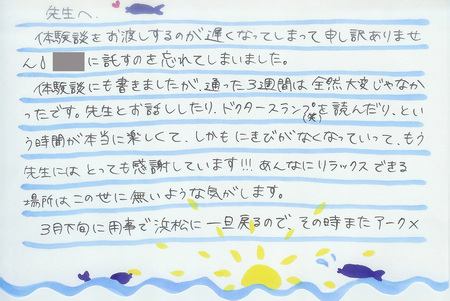 先生へ.
体験談をお渡しするのが遅くなってしまって申し訳ありませ
ん!に託すのを忘れてしまいました。
体験談にも書きましたが、通った3週間は全然大変じゃなか
ったです。先生とお話ししたり、ドクタースランプ(笑)を読んだり、とい
う時間が本当に楽しくて、しかもにきびがなくなっていって、もう
先生にはとっても感謝しています!!! あんなにリラックスできる
場所はこの世に無いような気がします。
3月下旬に用事で浜松に一旦戻るので、その時またアークメ